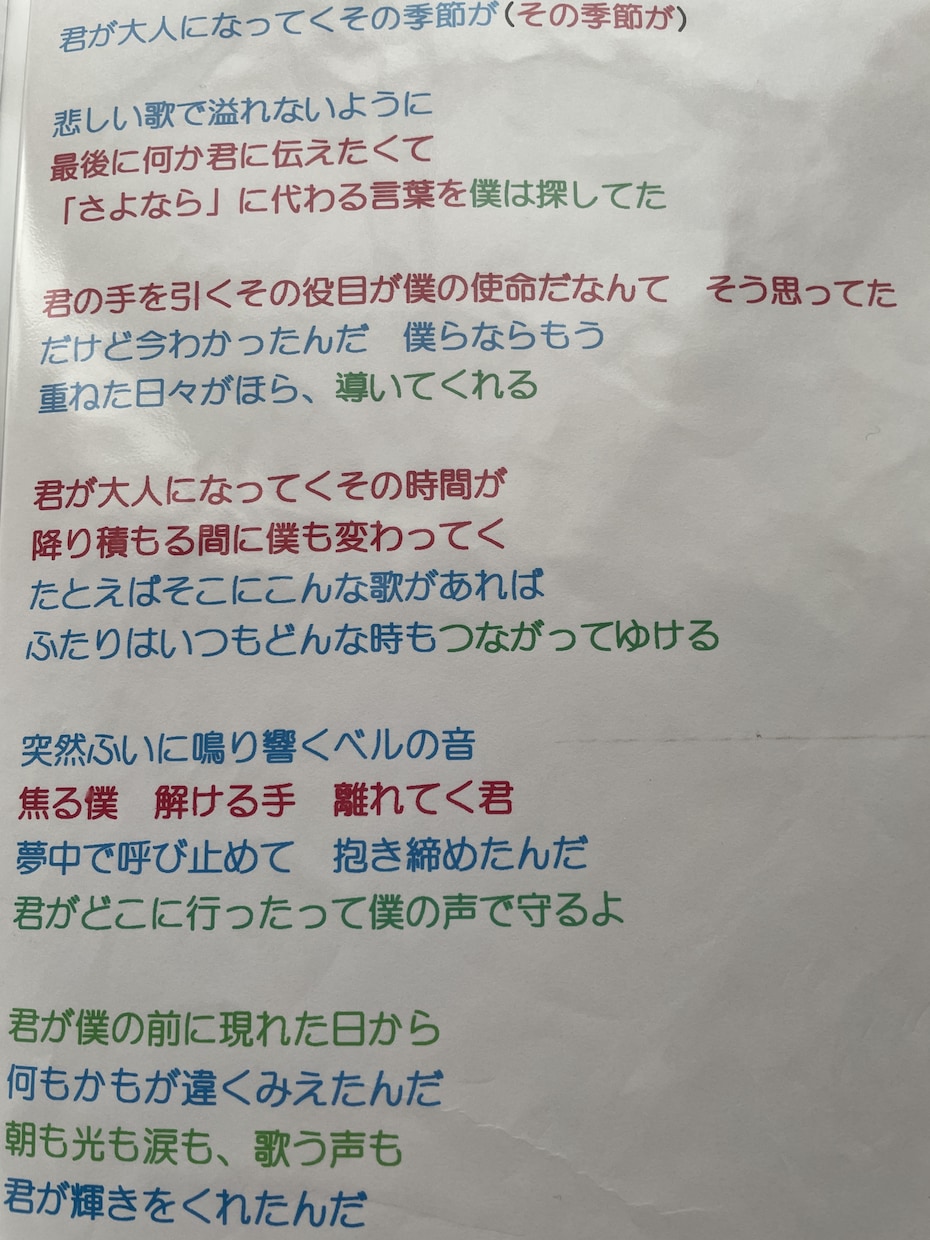 君が大人になってくその季節が(その季節が)
悲しい歌で溢れないように
最後に何か君に伝えたくて
「さよなら」に代わる言葉を僕は探してた
君の手を引くその役目が僕の使命だなんて　そう思ってた
だけど今わかったんだ　僕らならもう
重ねた日々がほら、導いてくれる
君が大人になってくその時間が
降り積もる間に僕も変わってく
たとえばそこにこんな歌があれば
ふたりはいつもどんな時もつながってゆける
突然ふいに鳴り響くベルの音
焦る僕　解ける手　離れてく君
夢中で呼び止めて　抱き締めたんだ
君がどこに行ったって僕の声で守るよ
君が僕の前に現れた日から
何もかもが違くみえたんだ
朝も光も涙も、歌う声も
君が輝きをくれたんだ